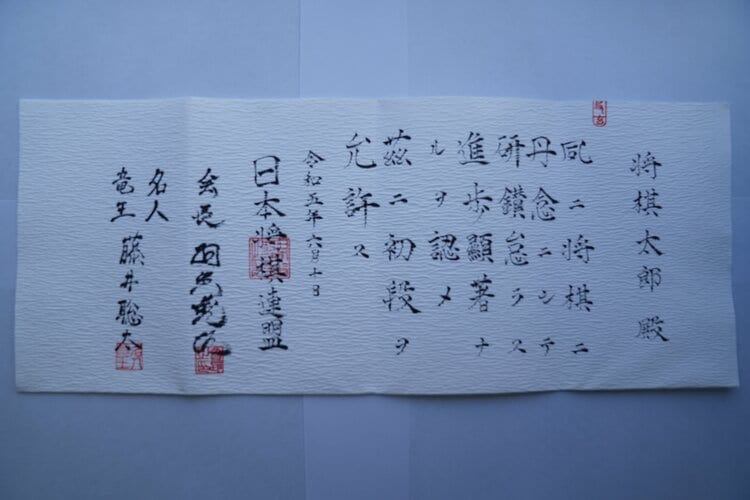 将棋太郎殿
夙ニ将棋ニ
丹念ニシテ
研鑚怠ラス
進歩顯著ナ
ルヲ認メ
茲ニ初段ヲ
允許ス
令和五年六月十日
日本将棋連盟
会長 羽生善治
名人
竜王 藤井聡太